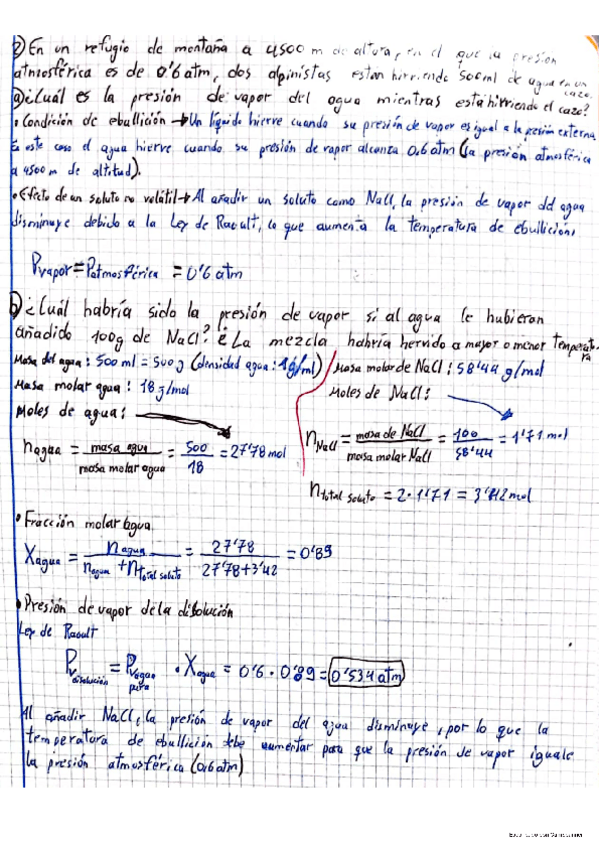 2) En un refugio de montaña a 4500 m de altura, en el que la presión
atmosférica es de 0'6 atm, dos alpinistas están hirviendo 500 ml de agua en un
cazo.
a) ¿Cuál es la presión de vapor del agua mientras está hirviendo el cazo?
• Condición de ebullición → Un líquido hierve cuando su presión de vapor es igual a la presión externa
En este caso el agua hierve cuando su presión de vapor alcanza 0.6 atm (la presión atmosférica
a 4500 m de altitud).
• Efecto de un soluto no volátil → Al añadir un soluto como NaCl, la presión de vapor del agua
disminuye debido a la Ley de Raoult, lo que aumenta la temperatura de ebullición.
Pvapor = Patmosférica = 0'6 atm
b) ¿Cuál habría sido la presión de vapor si al agua le hubieran
añadido 100g de NaCl? ¿La mezcla habría hervido a mayor o menor temperatu-
ra
Masa del agua: 500 ml = 500 g (densidad agua: 1g/ml)
Masa molar agua: 18 g/mol
Moles de agua:
nagua = masa agua / masa molar agua = 500 / 18 = 27'78 mol
Masa molar de NaCl: 58'44 g/mol
Moles de NaCl:
nNaCl = masa de NaCl / masa molar NaCl = 100 / 58'44 = 1'71 mol
ntotal soluto = 2 · 1'71 = 3'42 mol
• Fracción molar agua
Xagua = nagua / nagua + ntotal soluto = 27'78 / 27'78 + 3'42 = 0'89
• Presión de vapor de la disolución
Ley de Raoult
Pvdisolución = Pvagua pura · Xagua = 0'6 · 0'89 = 0'534 atm
Al añadir NaCl, la presión de vapor del agua disminuye, por lo que la
temperatura de ebullición debe aumentar para que la presión de vapor iguale
la presión atmosférica (0,6 atm)